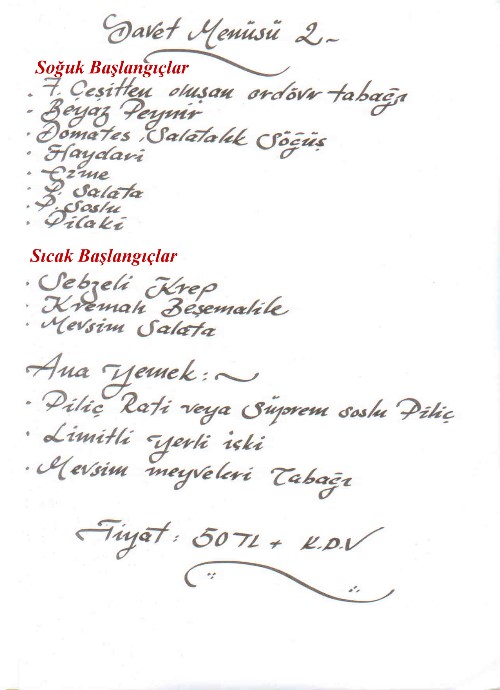 Davet Menüsü 2
Soğuk Başlangıçlar
. 7. Çeşitten oluşan ordövr tabağı
. Beyaz Peynir
. Domates, Salatalık Söğüş
. Haydari
. Ezme
. P. Salata
. P. Soslu
. Pilaki
Sıcak Başlangıçlar
. Sebzeli Krep
. Kremalı Beşemalile
. Mevsim Salata
Ana Yemek :
. Piliç Rati veya Süprem soslu Piliç
. Limitli yerli içki
. Mevsim meyveleri Tabağı
Fiyat : 50 TL + K.D.V